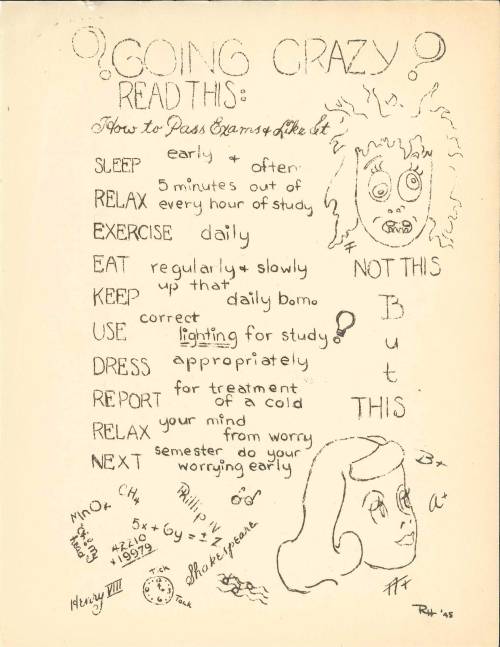 ?GOING CRAZY?
READ THIS:
How to Pass Exams & Like It
SLEEP early & often
RELAX 5 minutes out of every hour of study
EXERCISE daily
EAT regularly & slowly
KEEP up that daily b.m.
USE correct lighting for study!
DRESS appropriately
REPORT for treatment of a cold
RELAX your mind from worry
NEXT semester do your worrying early
NOT THIS
But
THIS
B+
A+
MnO4
CH4
Phillip IV
"O! my head"
5x + 6y = ± z
42210
x 19979
Shakespeare
Henry VIII
Tick
Tock
RH '45